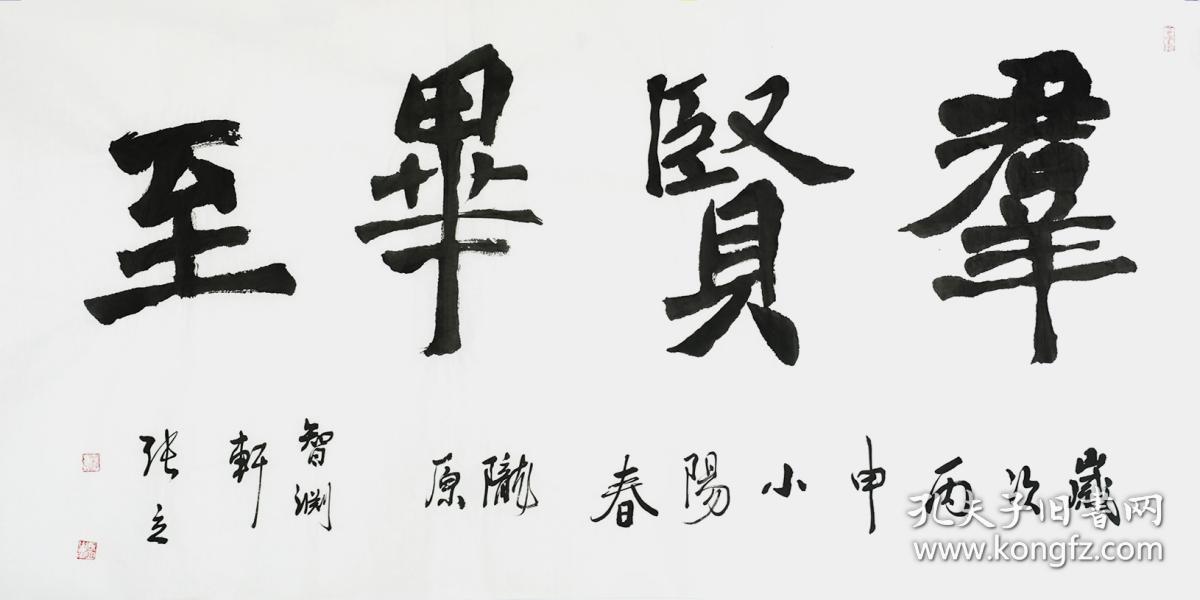 羣賢畢至
歲次丙申小陽春隴原智淵軒張立
孔夫子旧書网
www.kongfz.com